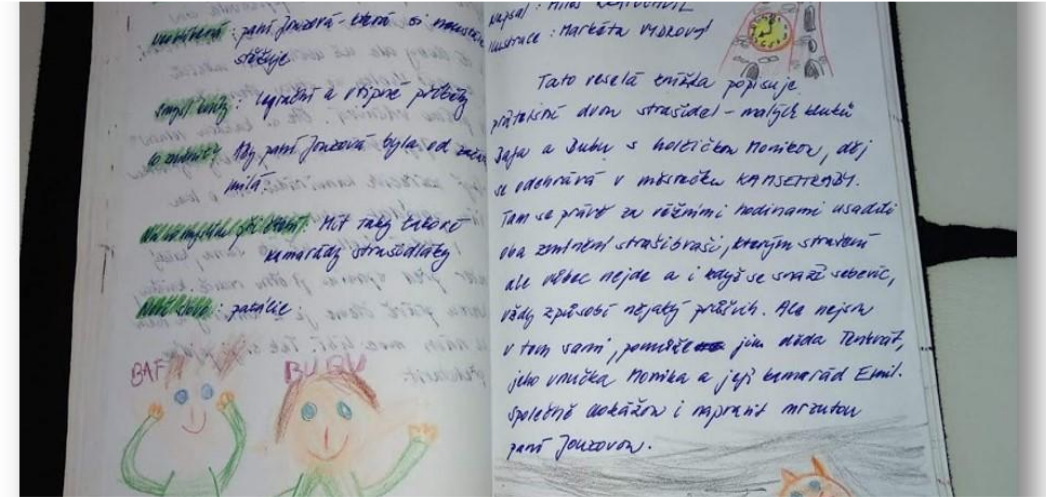 paní Jouzová - která si neustále
stěžuje
smysl knihy: legrační a vtipné příběhy
co změnit? Aby paní Jouzová byla od začát
milá.
při čtení: Mít taky takové
kamarády strašidláky
Nové slovo: patálie
BAF
BUBU
Napsal: Miloš KRATOCHVÍL
Ilustrace: Markéta VYDROVÁ
Tato veselá knížka popisuje
přátelství dvou strašidel - malých kluků
Bafa a Bubu s holčičkou Monikou, děj
se odehrává v městečku KAMSEHRABY.
Tam se právě za věžními hodinami usadili
oba zmínění strašibraši, kterým strašení
ale vůbec nejde a i když se snaží sebevíc,
vždy způsobí nějaký průšvih. Ale nejsou
v tom sami, pomůže jim děda Tenkrát,
jeho vnučka Monika a její kamarád Emil.
Společně dokážou i napravit mrzutou
paní Jouzovou.